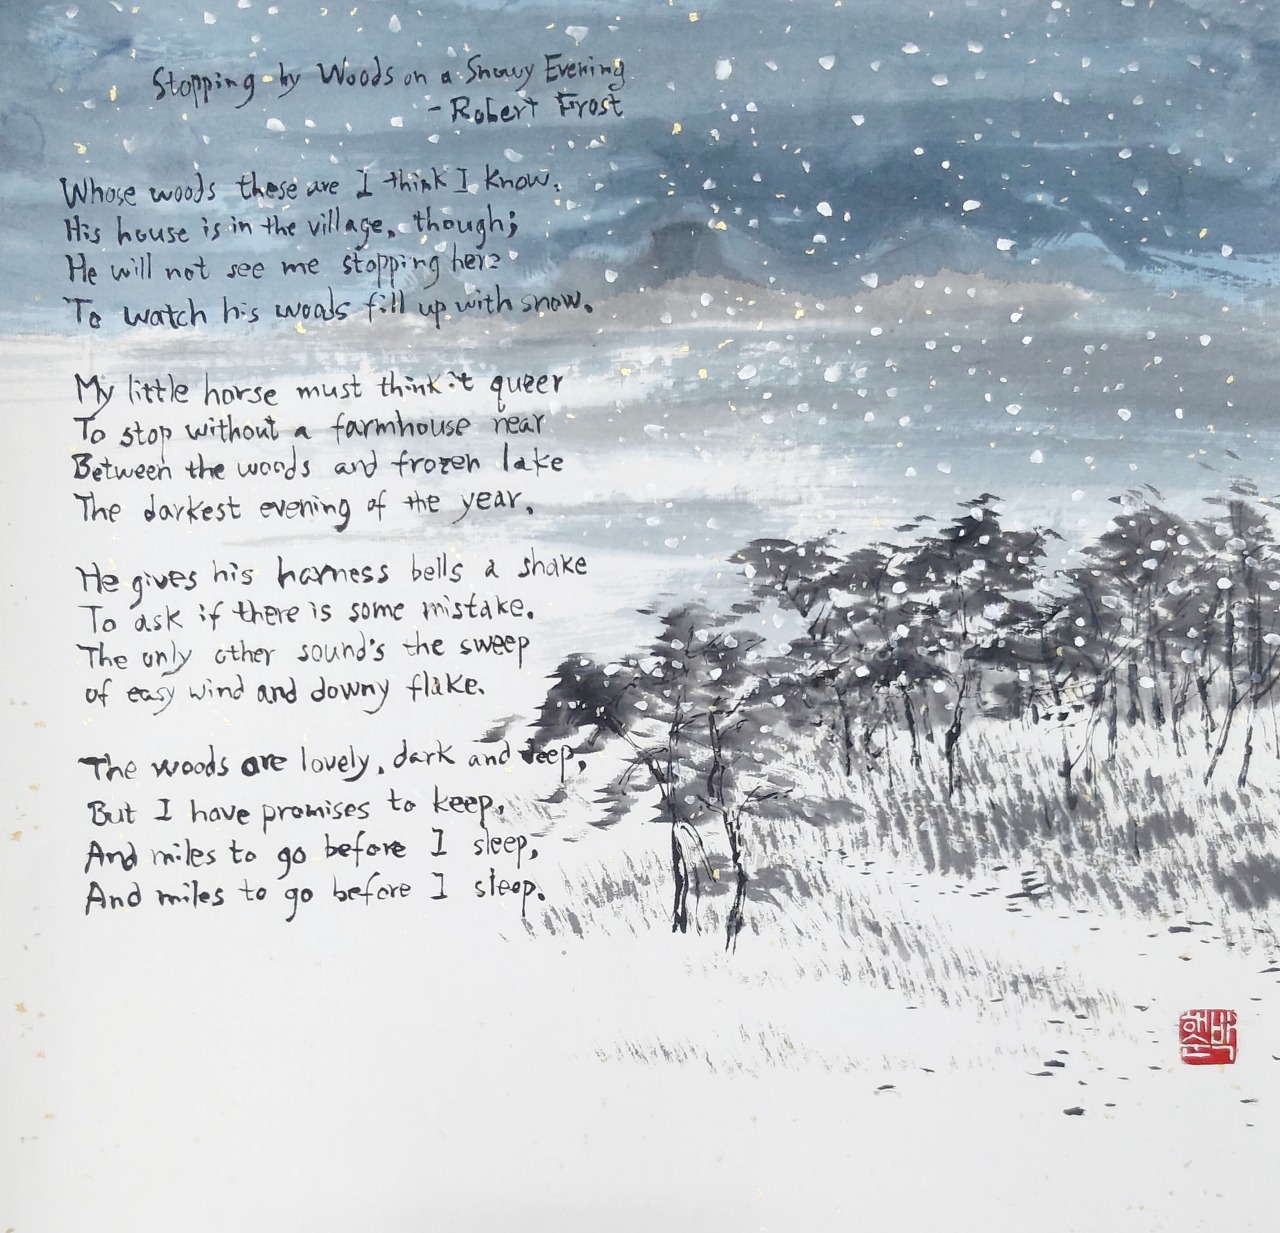 Stopping by Woods on a Snowy Evening
- Robert Frost
Whose woods these are I think I know.
His house is in the village, though;
He will not see me stopping here
To watch his woods fill up with snow.
My little horse must think it queer
To stop without a farmhouse near
Between the woods and frozen lake
The darkest evening of the year.
He gives his harness bells a shake
To ask if there is some mistake.
The only other sound's the sweep
of easy wind and downy flake.
The woods are lovely, dark and deep,
But I have promises to keep,
And miles to go before I sleep,
And miles to go before I sleep.